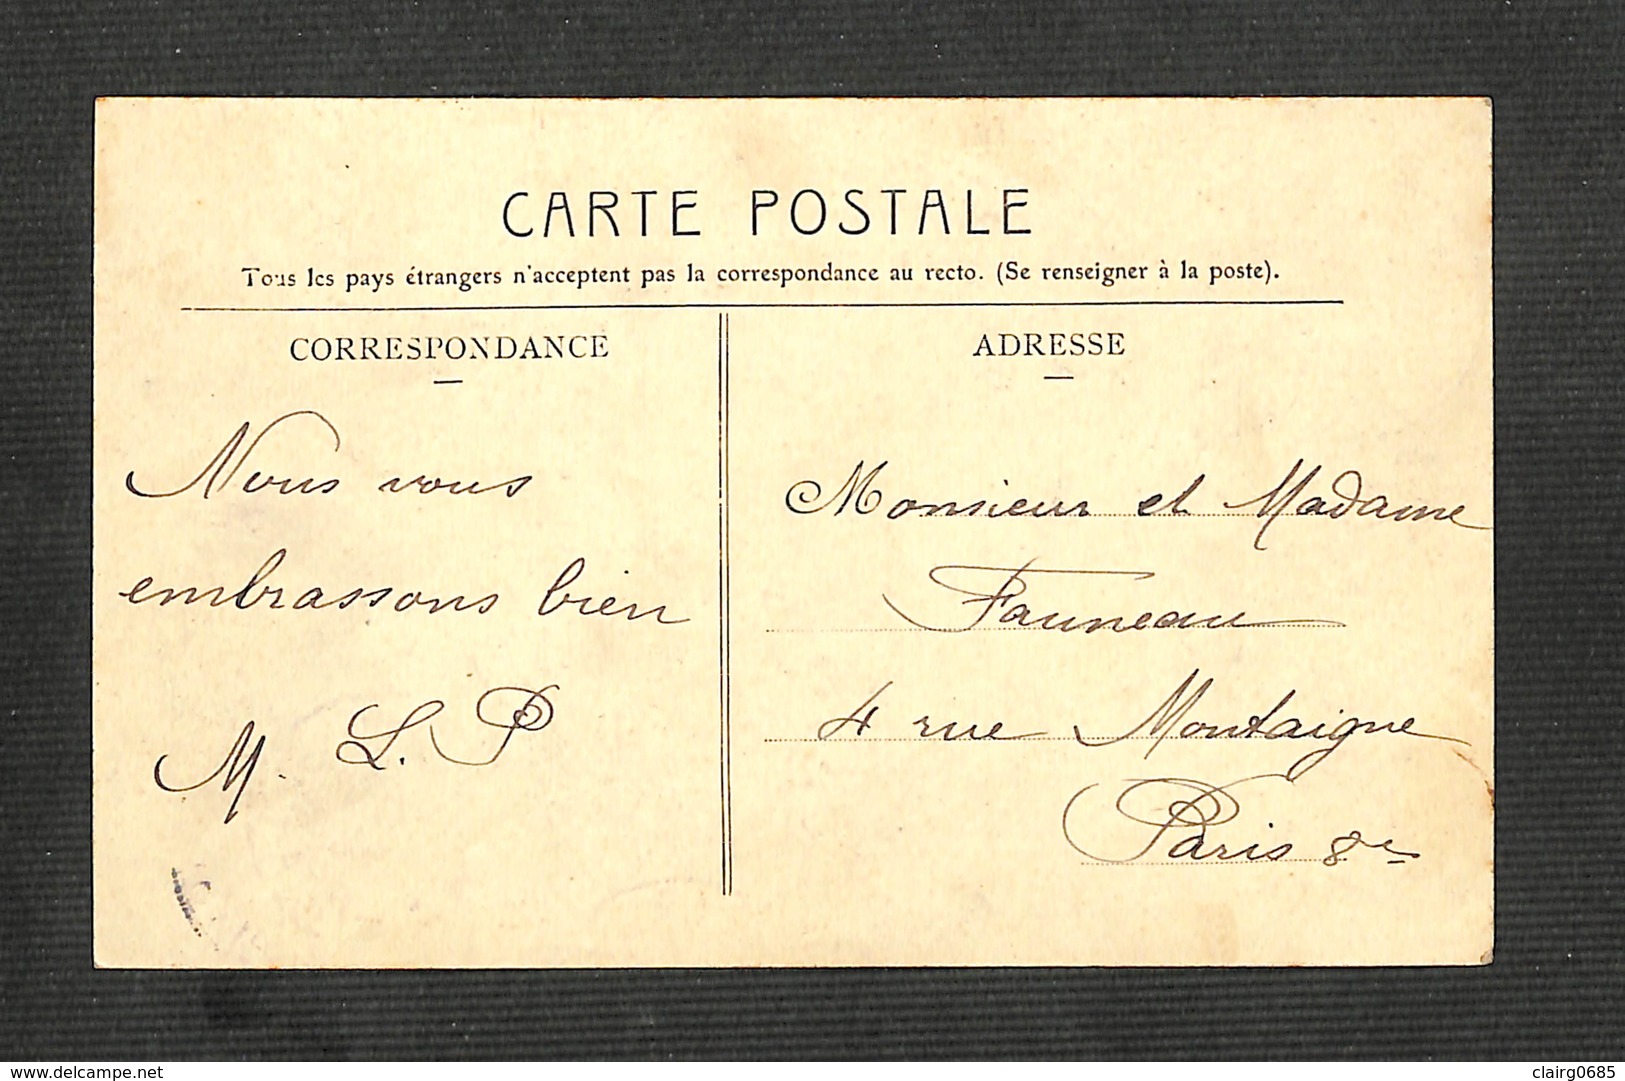 CARTE POSTALE
Tous les pays étrangers n'acceptent pas la correspondance au recto. (Se renseigner à la poste).
CORRESPONDANCE
Nous vous
embrassons bien
M. L. P
ADRESSE
Monsieur et Madame
Fauneau
4 rue Montaigne
Paris 8e
delcampe.net
clairg0685